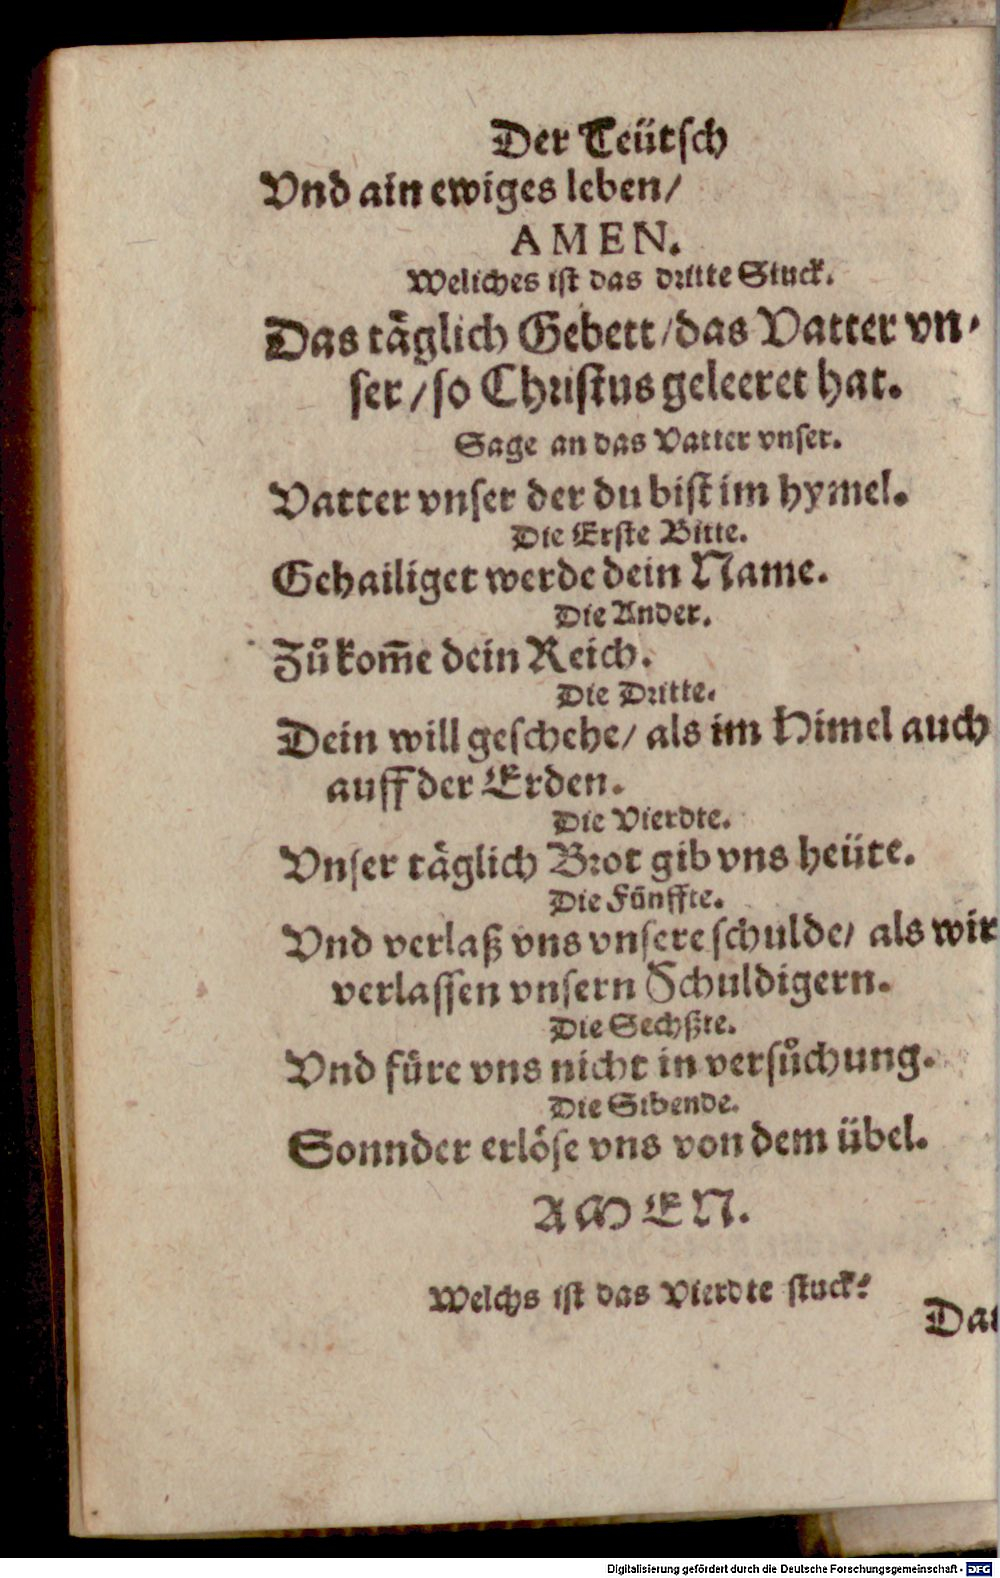 Der Teütsch
Vnd ain ewiges leben/
AMEN.
Weliches ist das dritte Stuck.
Das täglich Gebett/das Vatter vn-
ser/so Christus geleeret hat.
Sage an das Vatter vnser.
Vatter vnser der du bist im hymel.
Die Erste Bitte.
Gehailiget werde dein Name.
Die Ander.
Zů kom̃e dein Reich.
Die Dritte.
Dein will geschehe/ als im Himel auch
auff der Erden.
Die Vierdte.
Vnser täglich Brot gib vns heüte.
Die Fünffte.
Vnd verlaß vns vnsere schulde/ als wir
verlassen vnsern Schuldigern.
Die Sechßte.
Vnd füre vns nicht in versůchung.
Die Sibende.
Sonnder erlöse vns von dem übel.
AMEN.
Welchs ist das Vierdte stuck?
Digitalisierung gefördert durch die Deutsche Forschungsgemeinschaft - DFG